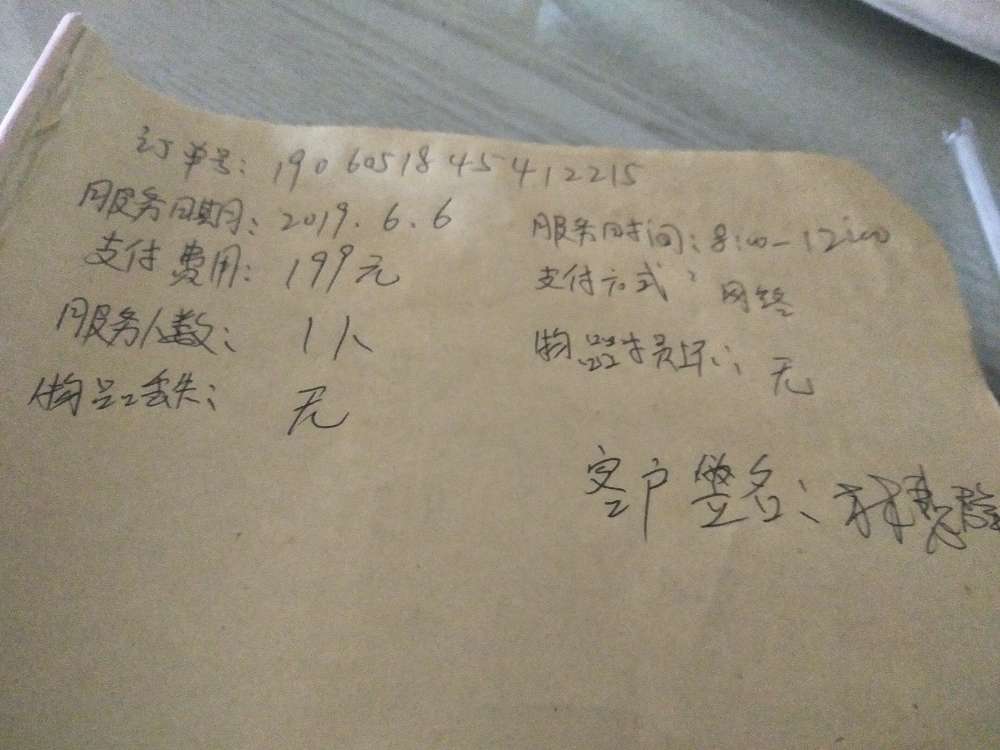 订单号：190605184541​2215
服务日期：2019.6.6 服务时间：8:00-12:00
支付费用：199元 支付方式：网络
服务人数：1人 物品损坏：无
物品丢失：无
客户签名：林